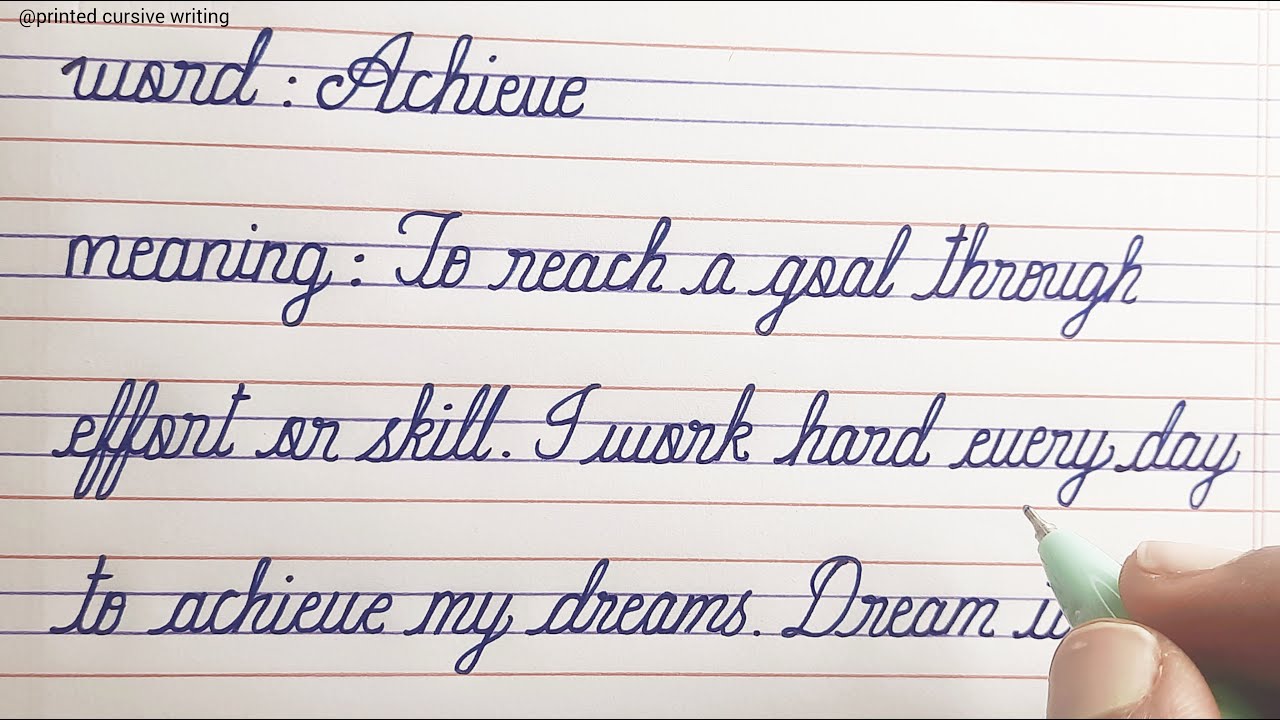 @printed cursive writing
word : Achieve
meaning : To reach a goal through
effort or skill. I work hard every day
to achieve my dreams. Dream